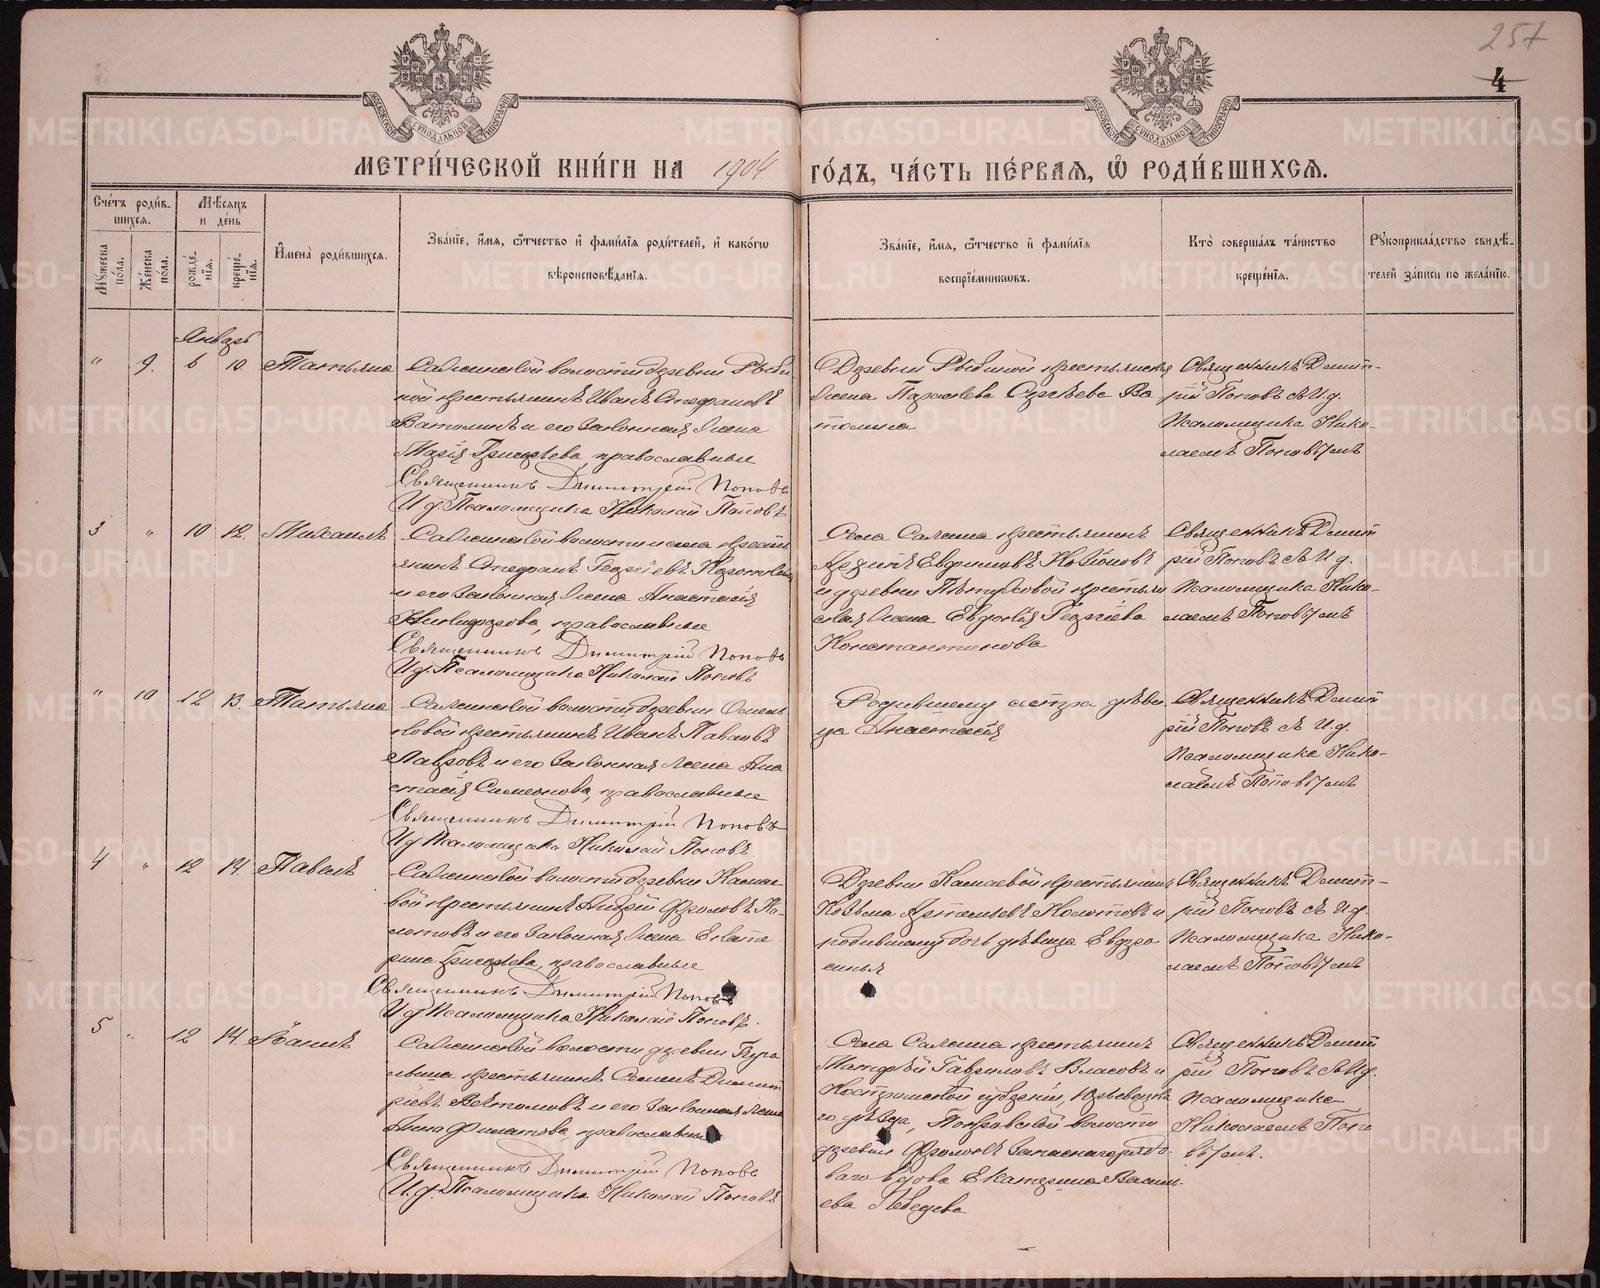 257
4
МОСКОВСКОЙ СУНОДАЛЬНОЙ ТИПОГРАФІИ
МОСКОВСКОЙ СУНОДАЛЬНОЙ ТИПОГРАФІИ
МЕТРИ́ЧЕСКОЙ КНИ́ГИ НА 1904 ГО́ДЪ, ЧА́СТЬ ПЕ́РВАЯ, Ѽ РОДИ́ВШИХСЯ.
Сче́тъ роди́в-
шихся.
Мѣ́сяцъ
и де́нь
Му́жеска
по́ла.
Же́нска
по́ла.
рожде́-
нїя.
креще́-
нїя.
И҆мена̀ роди́вшихся.
Зва́нїе, и҆́мя, ѻ҆́тчество и҆ фами́лїя роди́телей, и҆ како́гѡ
вѣроисповѣ́данїя.
Зва́нїе, и҆́мя, ѻ҆́тчество и҆ фами́лїя
воспрїе́мникѡвъ.
Кто̀ соверша́лъ та́инство
креще́нїя.
Рꙋкоприкла́дство свидѣ́-
телей за́писи по жела́нїю.
Январь
" 9. 6 10 Татьяна
Саженской волости деревни Рыби
ной крестьянинъ Иванъ Стефановъ
Ватолинъ и его законная жена
Марія Григорьева, православные
Священникъ Димитрій Поповъ
И. д. Псаломщика Николай Поповъ
Деревни Рыбиной крестьянская
жена Сергѣева Ва
толина
Священникъ Димит-
рій Поповъ съ И. д.
Псаломщика Нико-
лаемъ Поповымъ
3 " 10 12. Михаилъ
волости села крестья
нинъ Стефанъ Георгіевъ
и его законная жена Анастасія
Никифорова, православные
Священникъ Димитрій Поповъ
И. д. Псаломщика Николай Поповъ
Села Сажина крестьянинъ
Евфимовъ
и деревни крестьян
ская жена Евдокія Георгіева
Константинова
Священникъ Димит
рій Поповъ съ И. д.
Псаломщика Нико-
лаемъ Поповымъ
" 10 12 13. Татьяна
волости деревни
ковой крестьянинъ Иванъ Павловъ
Лавровъ и его законная жена Ана
стасія Симеонова, православные
Священникъ Димитрій Поповъ
И д Псаломщика Николай Поповъ
Родившему сестра дѣви
ца Анастасія
Священникъ Димит
рій Поповъ съ И. д.
Псаломщика Нико-
лаемъ Поповымъ
4 " 12 14. Павелъ
волости деревни Камае
вой крестьянинъ Андрей Фроловъ Ко-
лотовъ и его законная жена Екате
рина Григорьева, православные
Священникъ Димитрій Поповъ
И. д. Псаломщика Николай Поповъ.
Деревни Камаевой крестьянинъ
Козьма Колотовъ и
родившему дочь дѣвица Евдро
синья
Священникъ Димит-
рій Поповъ съ И. д.
Псаломщика Нико-
лаемъ Поповымъ
5 " 12 14. Іоаннъ
волости деревни
крестьянинъ Семенъ Димит
ріевъ и его законная жена
Анна Филатова, православные
Священникъ Димитрій Поповъ
И. д. Псаломщика Николай Поповъ
Села Сажина крестьянинъ
Матфей Гавриловъ Власовъ и
Костромской губерніи, Юрьевецка
го уѣзда, Покровской волости
деревни Фролова запаснаго рядо
ваго вдова Екатерина Василь-
ева Лебедева
Священникъ Димит
рій Поповъ съ И. д.
Псаломщика
Николаемъ Попо
вымъ.